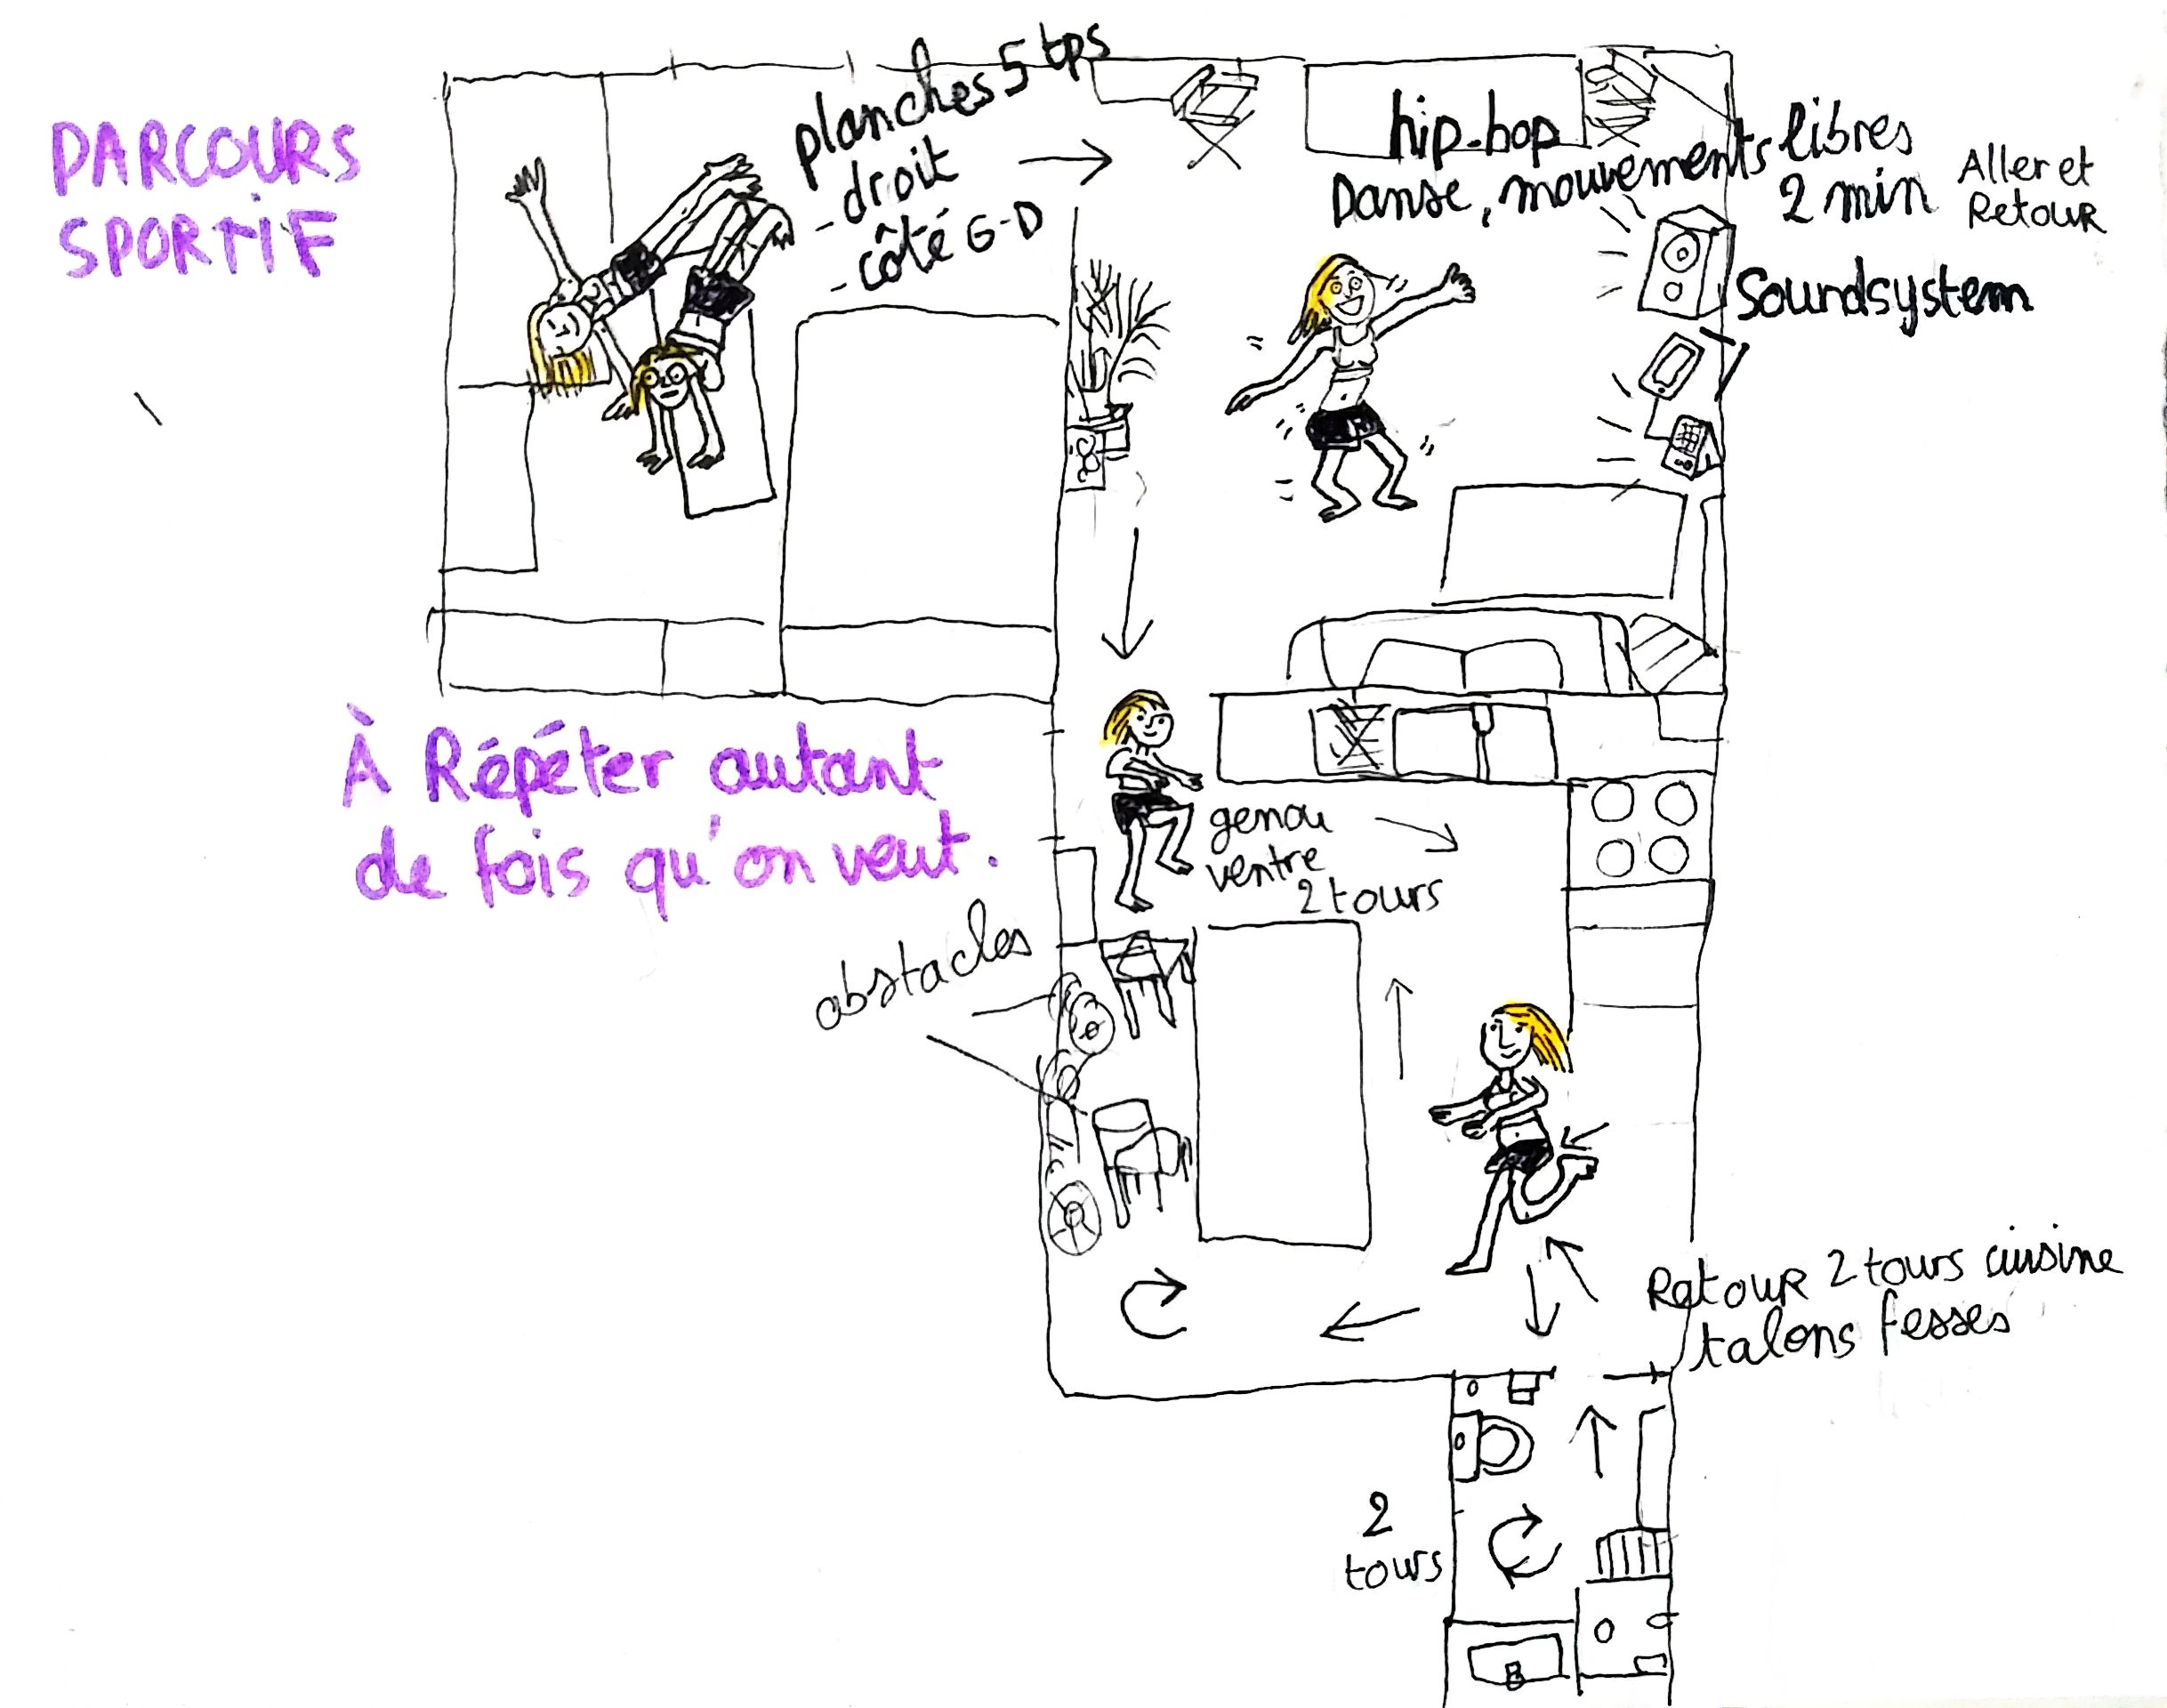 PARCOURS
SPORTIF
planches 5 tps
- droit
- côté G-D
hip-hop
Danse, mouvements libres
2 min
Aller et
Retour
Soundsystem
À Répéter autant
de fois qu'on veut.
genou
ventre
2 tours
obstacles
Retour 2 tours cuisine
talons fesses
2
tours